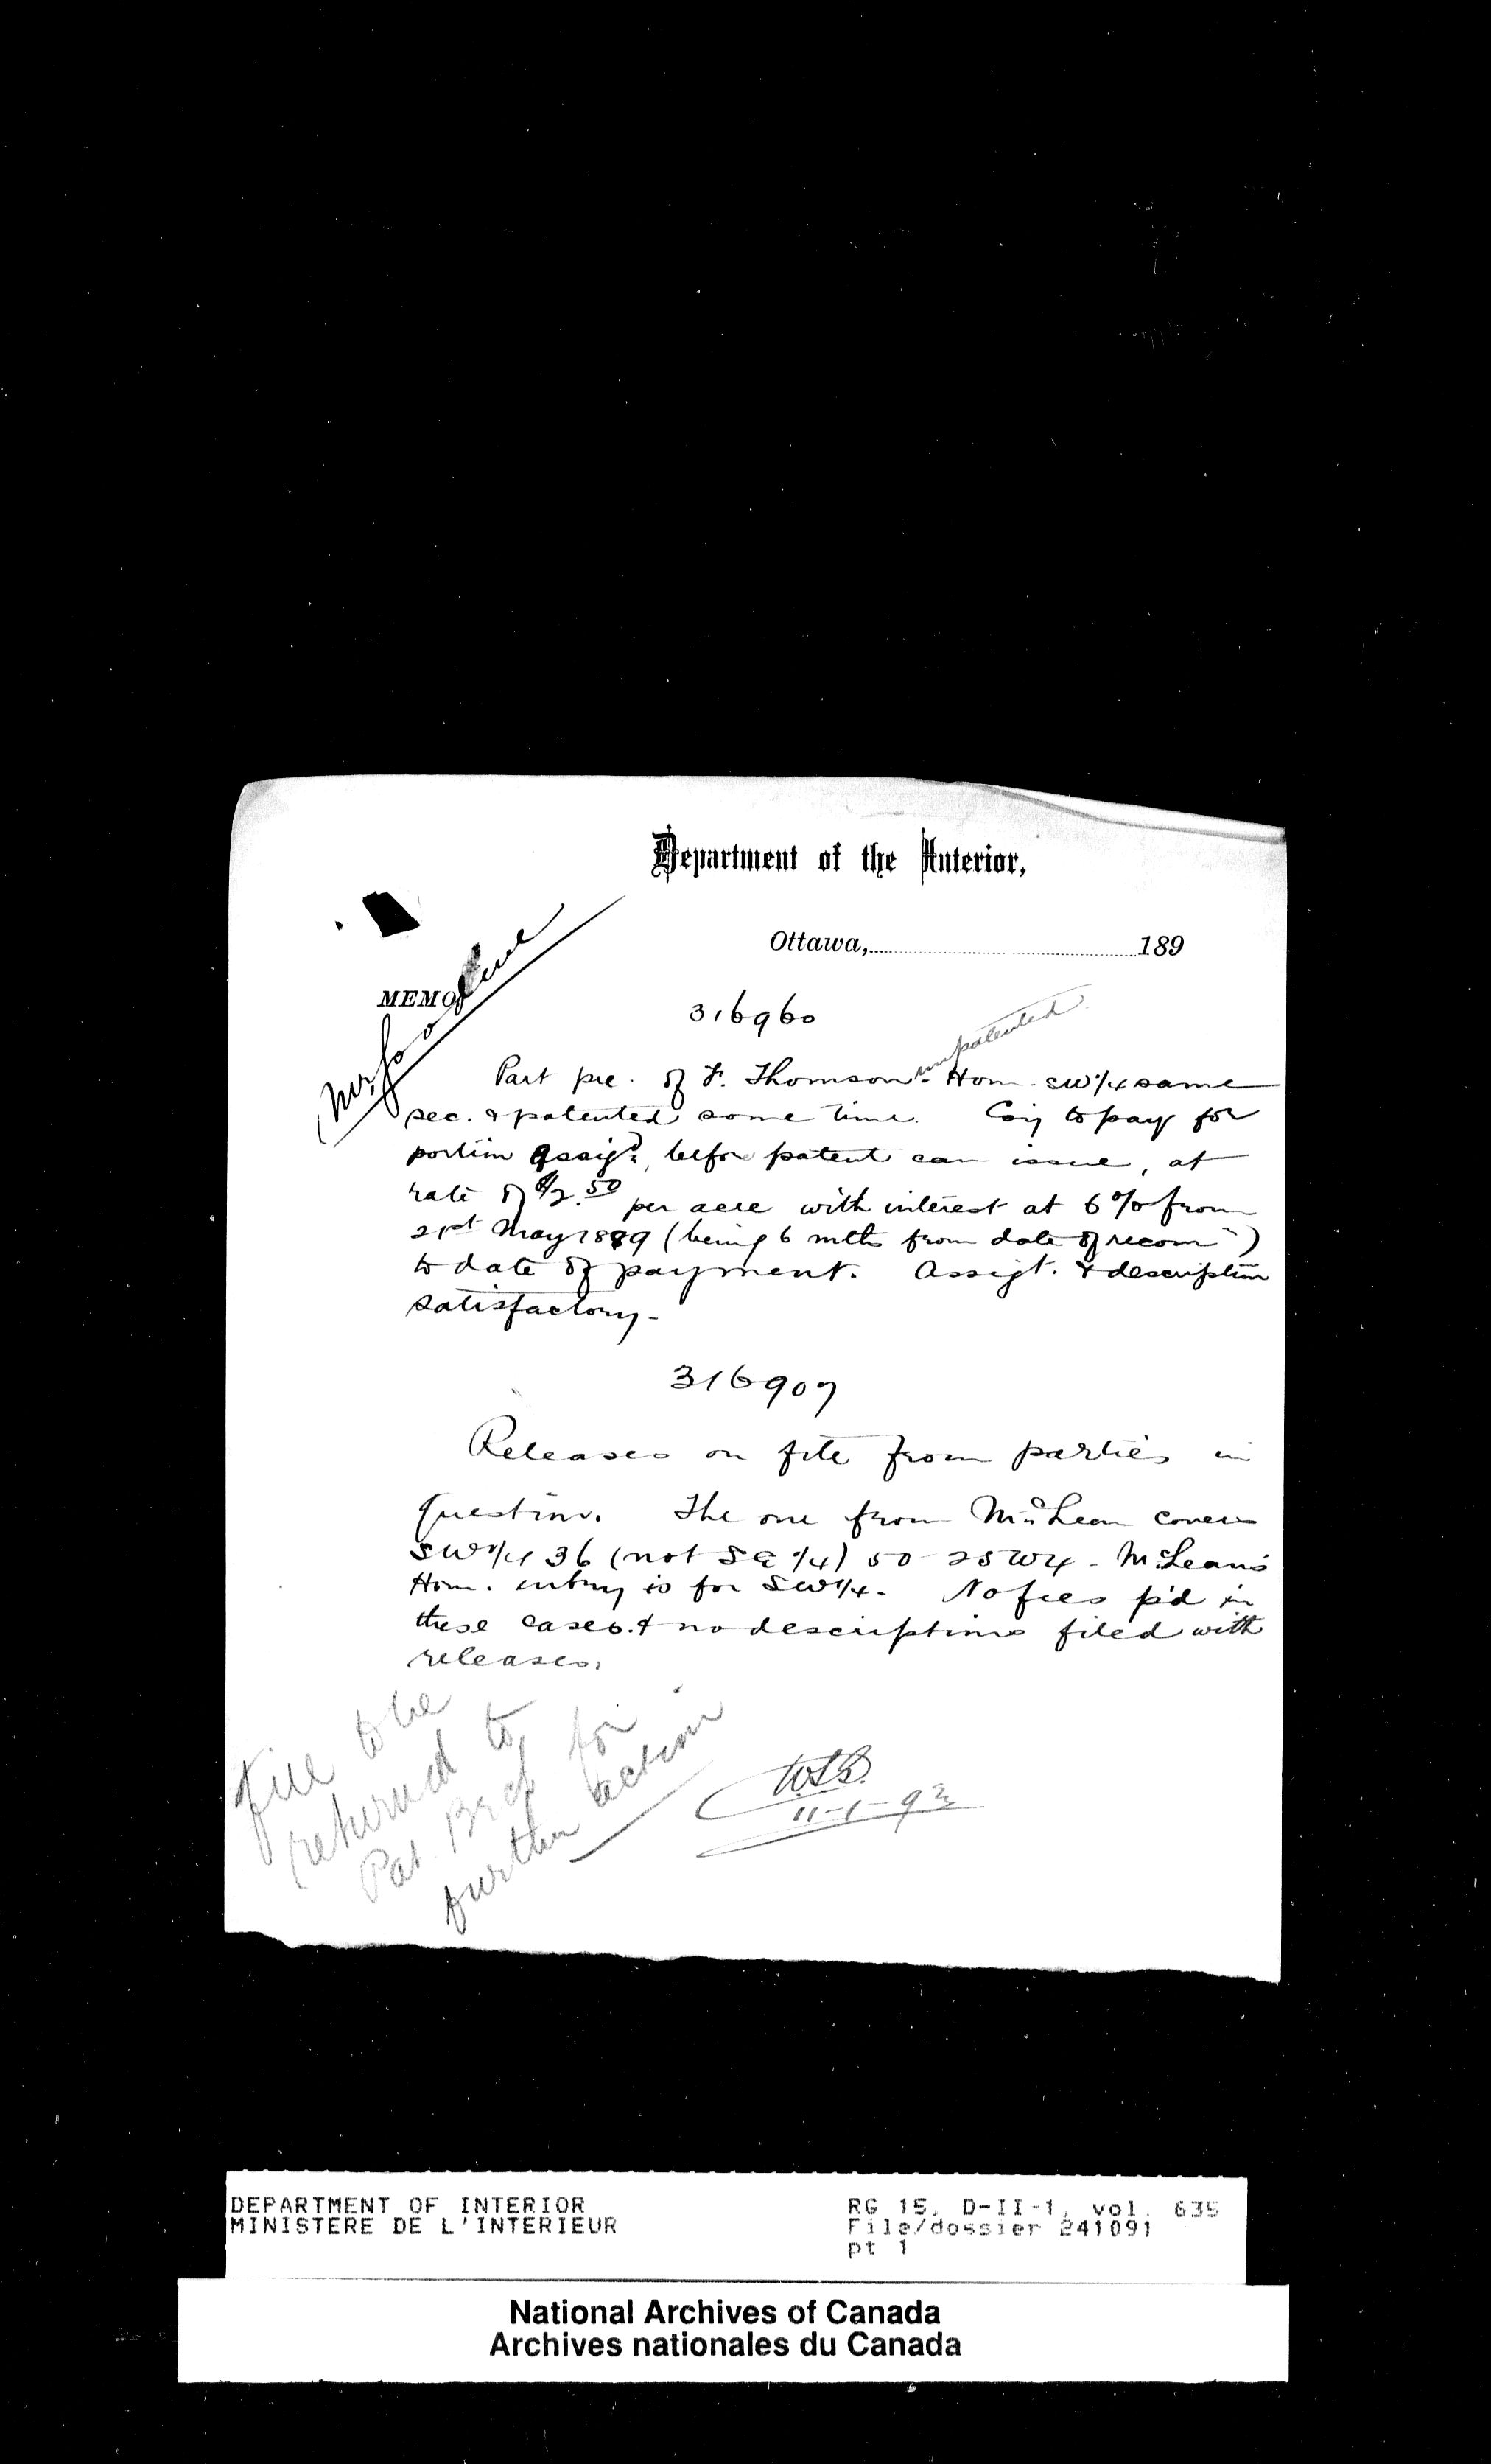 Department of the Interior,
Ottawa, 189
MEMO
316960
unpatented
Part pre. of F. Thomson. Hom. SW 1/4 same
sec. & patented some time. Coy to pay for
portion assigd, before patent can issue, at
rate of $2.50 per acre with interest at 6% from
21st May 1889 (being 6 mths from date of recomn)
to date of payment. Assigt. & description
satisfactory.
316907
Releases on file from parties in
question. The one from McLean covers
SW 1/4 36 (not SE 1/4) 50 25 W4 - McLean's
Hom. entry is for SW 1/4. No fees p'd in
these cases. & no descriptions filed with
releases.
File to be
returned to
Pat Brch for
further action
11-1-93
DEPARTMENT OF INTERIOR
MINISTERE DE L'INTERIEUR
RG 15, D-II-1, vol. 635
File/dossier 241091
pt 1
National Archives of Canada
Archives nationales du Canada